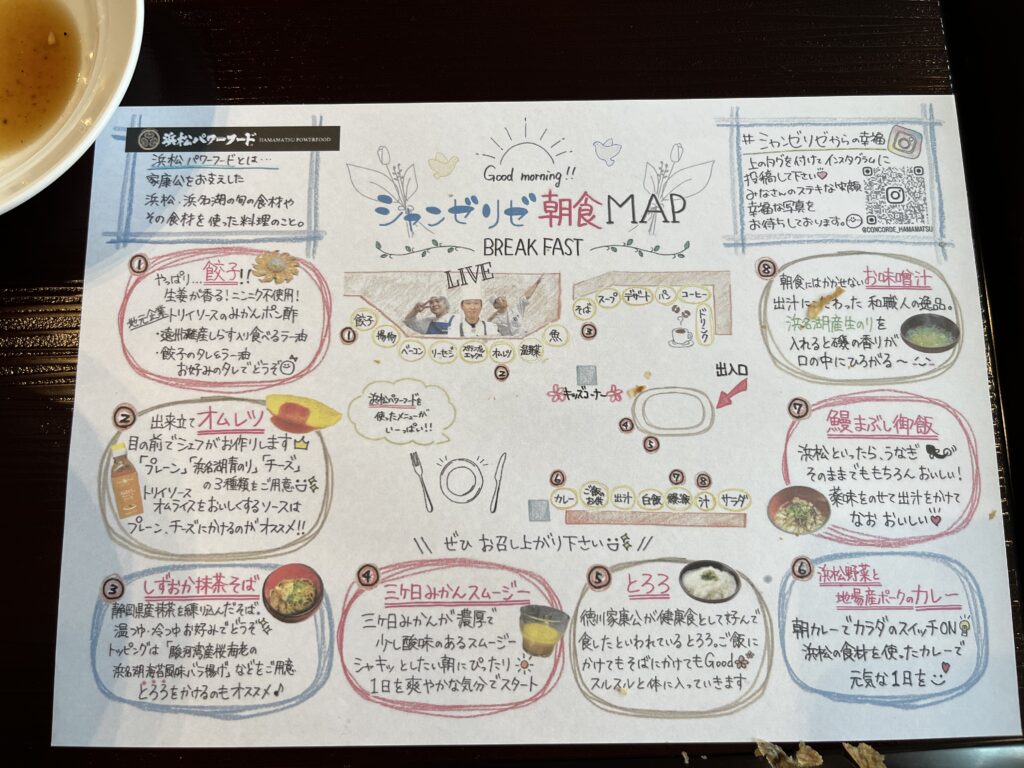 浜松パワーフード HAMAMATSU POWERFOOD
浜松パワーフードとは…
家康公をお支えした
浜松、浜名湖の旬の食材や
その食材を使った料理のこと。
Good morning!!
シャンゼリゼ朝食MAP
BREAK FAST
#シャンゼリゼからの幸福
上のタグを付けてインスタグラムに
投稿して下さい
みなさんのステキな笑顔
幸福な写真を
お待ちしております。
@CONCORDE_HAMAMATSU
①
やっぱり…餃子!!
生姜が香る!ニンニク不使用!
地元企業トリイソースのみかんポン酢
・遠州灘産しらす入り食べるラー油
・餃子のタレ&ラー油
お好みのタレでどうぞ
②
出来立てオムレツ
目の前でシェフがお作りします
「プレーン」「浜名湖青のり」「チーズ」
の3種類をご用意
トリイソース
オムライスをおいしくするソースは
プレーン、チーズにかけるのがオススメ!!
③
しずおか抹茶そば
静岡県産抹茶を練り込んだそば。
温つゆ・冷つゆお好みでどうぞ
トッピングは「駿河湾産桜海老の
浜名湖海苔風味バラ揚げ」などをご用意
とろろをかけるのもオススメ♪
④
三ケ日みかんスムージー
三ケ日みかんが濃厚で
少し酸味のあるスムージー
シャキッとしたい朝にぴったり
1日を爽やかな気分でスタート
⑤
とろろ
徳川家康公が健康食として好んで
食したといわれているとろろ。ご飯に
かけてもそばにかけてもGood
スルスルと体に入っていきます
⑥
浜松野菜と
地場産ポークのカレー
朝カレーでカラダのスイッチON
浜松の食材を使ったカレーで
元気な1日を
⑦
鰻まぶし御飯
浜松といったら、うなぎ
そのままでももちろんおいしい!
薬味をのせて出汁をかけて
なおおいしい
⑧
朝食にはかかせないお味噌汁
出汁にこだわった和職人の逸品。
浜名湖産生のりを
入れると磯の香りが
口の中にひろがる〜
LIVE
① 餃子 焼物 ベーコン ソーセージ スクランブルエッグ オムレツ 温野菜 魚
②
そば スープ デザート パン コーヒー
③
ドリンク
浜松パワーフードを
使ったメニューが
いーっぱい!!
キッズコーナー
出入口
④
⑤
⑥ ⑦ ⑧
カレー ご飯お供 出汁 白飯 鰻飯 汁 サラダ
\\ ぜひお召し上がり下さい //